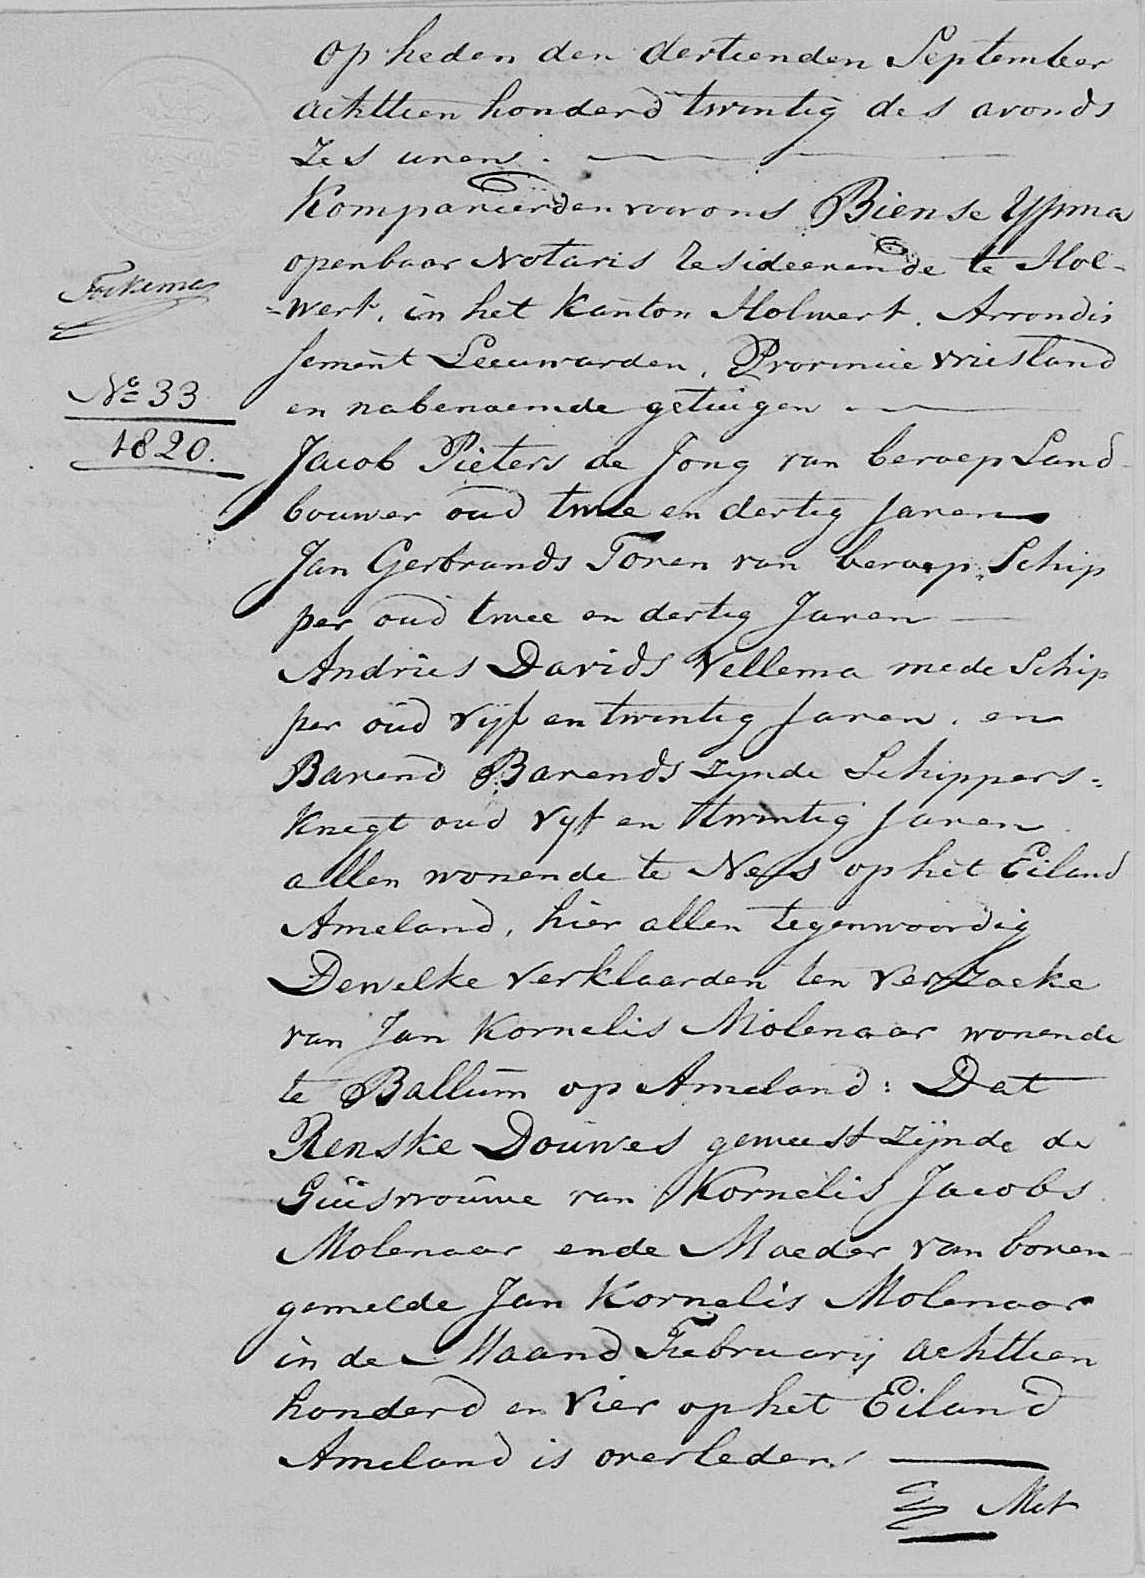 Op heden den dertienden September
achttien honderd twintig des avonds
zes uuren.
Kompareerden voor ons Biense Ypma
openbaar Notaris resideerende te Hol-
-wert, in het kanton Holwert. Arrondis
sement Leeuwarden, Provincie Vriesland
en nabenoemde getuigen
Fockema
No 33
1820.
Jacob Pieters de Jong van beroep Land-
bouwer oud twee en dertig Jaren
Jan Gerbrands Toren van beroep Schip
per oud twee en dertig Jaren
Andries Davids Vellema mede Schip
per oud vijf en twintig Jaren. en
Barend Barends zynde Schippers=
knegt oud vyf en twintig Jaren
allen wonende te Nes op het Eiland
Ameland, hier allen tegenwoordig
Dewelke verklaarden ten verzoeke
van Jan Kornelis Molenaar wonende
te Ballum op Ameland: Dat
Renske Douwes geweest zijnde de
Huisvrouwe van Kornelis Jacobs
Molenaar ende Moeder van boven-
gemelde Jan Kornelis Molenaar
in de Maand Februarij achttien
honderd en vier op het Eiland
Ameland is overleden
Met